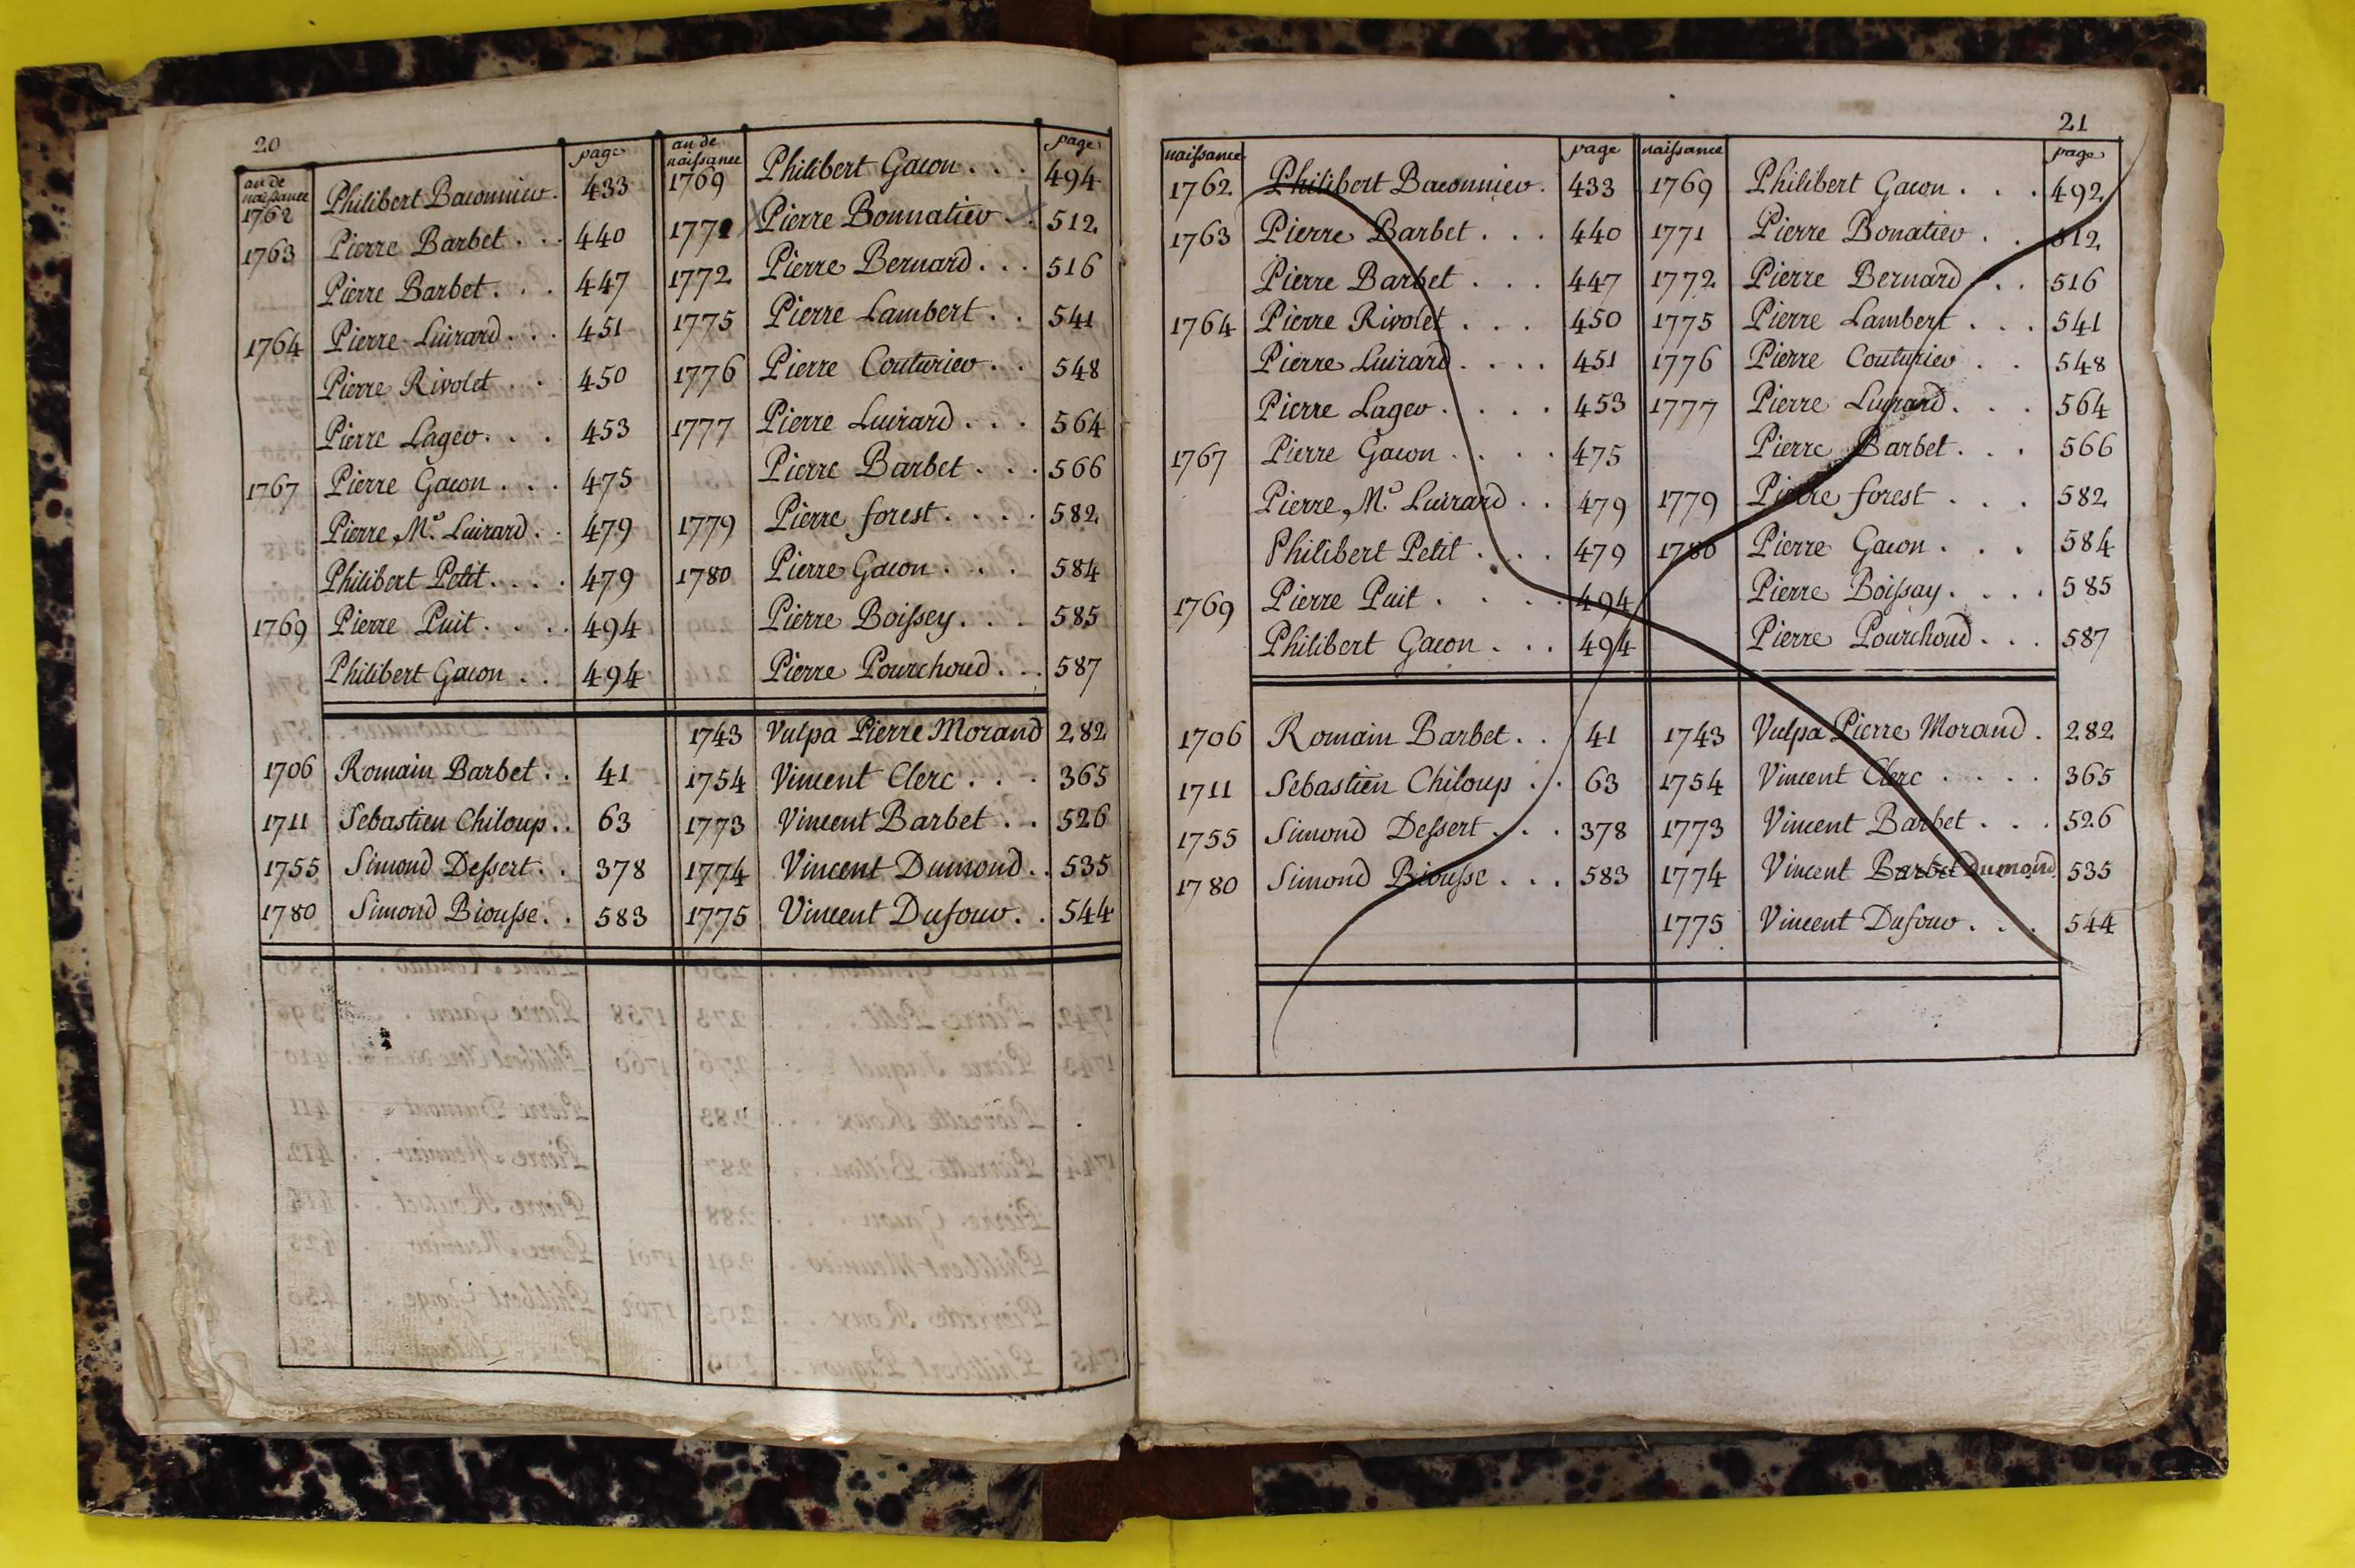 20
an de naissance page
1762 Philibert Baconnier. 433
1763 Pierre Barbet . . . 440
Pierre Barbet . . . 447
1764 Pierre Luirard . . . 451
Pierre Rivolet . . . 450
Pierre Lager . . . 453
1767 Pierre Gacon . . . 475
Pierre M.s Luirard . . 479
Philibert Petit . . . . 479
1769 Pierre Puit . . . . 494
Philibert Gacon . . . 494
1706 Romain Barbet . . 41
1711 Sebastien Chiloup . . 63
1755 Simond Dessert . . 378
1780 Simond Biousse . . 583
an de naissance page
1769 Philibert Gacon . . . 494
1771 Pierre Bonnatier . 512
1772 Pierre Bernard . . . 516
1775 Pierre Lambert . . 541
1776 Pierre Couturier . . 548
1777 Pierre Luirard . . . 564
Pierre Barbet . . . 566
1779 Pierre forest . . . . 582
1780 Pierre Gacon . . . 584
Pierre Boissey . . . 585
Pierre Pourchoud . . . 587
1743 Vulpa Pierre Morand 282
1754 Vincent Clerc . . . 365
1773 Vincent Barbet . . 526
1774 Vincent Dumond . . 535
1775 Vincent Dufour . . 544
21
naissance page
1762 Philibert Baconnier . 433
1763 Pierre Barbet . . . 440
Pierre Barbet . . . 447
1764 Pierre Rivolet . . . 450
Pierre Luirard . . . . 451
Pierre Lager . . . . 453
1767 Pierre Gacon . . . . 475
Pierre M.s Luirard . . 479
Philibert Petit . . . 479
1769 Pierre Puit . . . . 494
Philibert Gacon . . . 494
1706 Romain Barbet . . 41
1711 Sebastien Chiloup . . 63
1755 Simond Dessert . . . 378
1780 Simond Biousse . . . 583
naissance page
1769 Philibert Gacon . . . 492
1771 Pierre Bonatier . . 512
1772 Pierre Bernard . . . 516
1775 Pierre Lambert . . . 541
1776 Pierre Couturier . . 548
1777 Pierre Luirard . . . 564
Pierre Barbet . . . 566
1779 Pierre forest . . . 582
1780 Pierre Gacon . . . 584
Pierre Boissay . . . . 585
Pierre Pourchoud . . . 587
1743 Vulpa Pierre Morand . 282
1754 Vincent Clerc . . . . 365
1773 Vincent Barbet . . . 526
1774 Vincent Barbet Dumond 535
1775 Vincent Dufour . . . 544